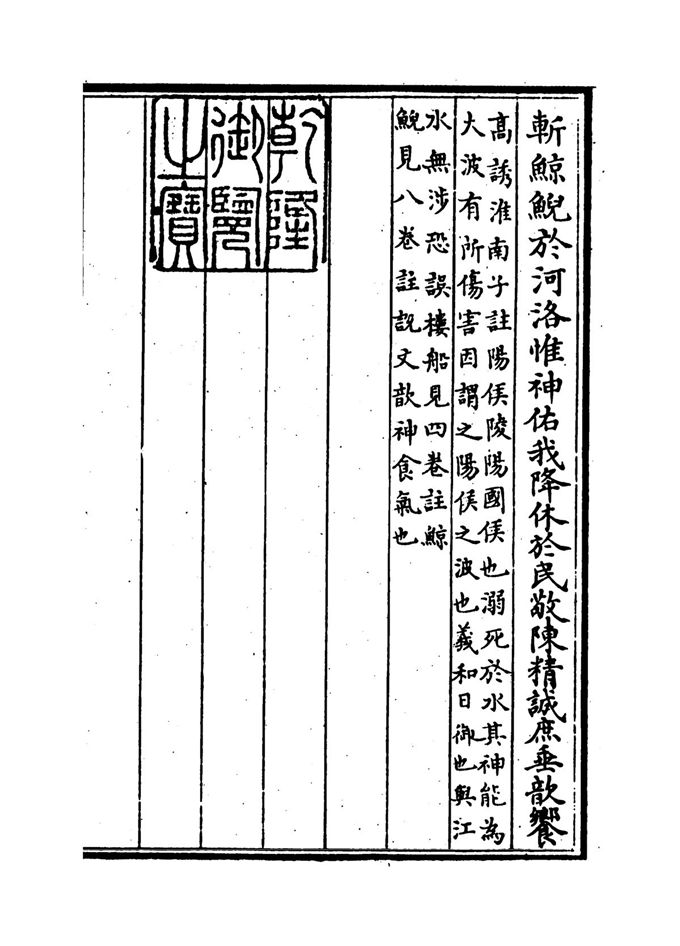 斬鯨鯢於河洛惟神佑我降休於民敬陳精誠庶垂歆饗
高誘淮南子註陽侯陵陽國侯也溺死於水其神能為
大波有所傷害因謂之陽侯之波也羲和日御也與江
水無涉恐誤樓船見四卷註鯨
鯢見八卷註說文歆神食氣也
乾隆
御覽
之寶